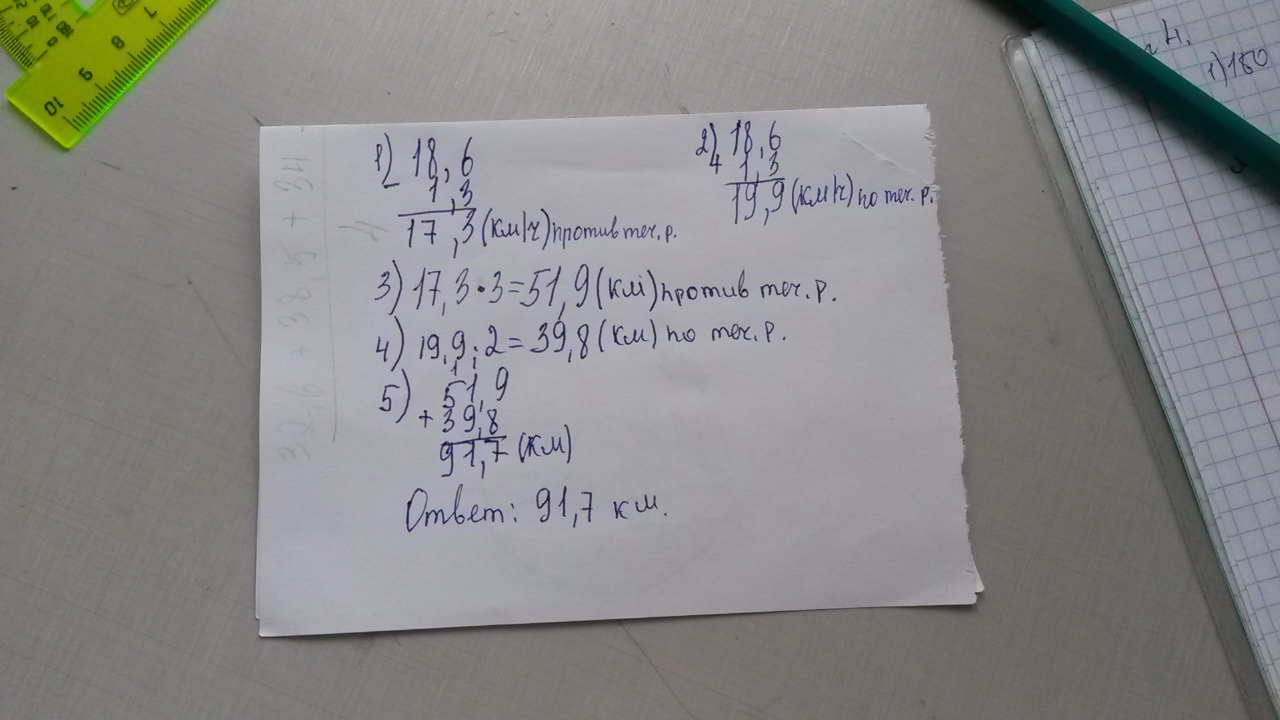 1) 18,6
- 1,3
17,3 (км/ч) против теч. р.
2) 18,6
+ 1,3
19,9 (км/ч) по теч. р.
3) 17,3 · 3 = 51,9 (км) против теч. р.
4) 19,9 · 2 = 39,8 (км) по теч. р.
5) 51,9
+ 39,8
91,7 (км)
Ответ: 91,7 км.
32,6 + 38,5 + 34
4.
1) 180
10 9 8 7